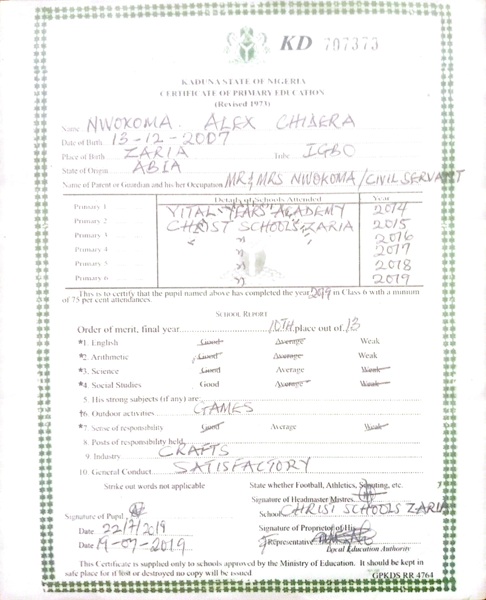 KD 707373
KADUNA STATE OF NIGERIA
CERTIFICATE OF PRIMARY EDUCATION
(Revised 1973)
Name NWOKOMA ALEX CHIDERA
Date of Birth 13-12-2007
Place of Birth ZARIA Tribe IGBO
State of Origin ABIA
Name of Parent or Guardian and his Occupation MR & MRS NWOKOMA / CIVIL SERVANT
Details of Schools Attended Year
Primary 1 VITAL YEARS ACADEMY 2014
Primary 2 CHRIST SCHOOLS ZARIA 2015
Primary 3 " 2016
Primary 4 " 2017
Primary 5 " 2018
Primary 6 " 2019
This is to certify that the pupil named above has completed the year 2019 in Class 6 with a minimum
of 75 per cent attendances.
SCHOOL REPORT
Order of merit, final year 10TH place out of 13
*1. English Good Average Weak
*2. Arithmetic Good Average Weak
*3. Science Good Average Weak
*4. Social Studies Good Average Weak
5. His strong subjects (if any) are
†6. Outdoor activities GAMES
*7. Sense of responsibility Good Average Weak
8. Posts of responsibility held
9. Industry CRAFTS
10. General Conduct SATISFACTORY
Strike out words not applicable State whether Football, Athletics, Scouting, etc.
Signature of Headmaster/Mistres
School CHRIST SCHOOLS ZARIA
Signature of Pupil
Signature of Proprietor of His
Date 22/7/2019 Representative
Date 19-07-2019 Local Education Authority
This Certificate is supplied only to schools approved by the Ministry of Education. It should be kept in
safe place for if lost or destroyed no copy will be issued. GPKDS RR 4764